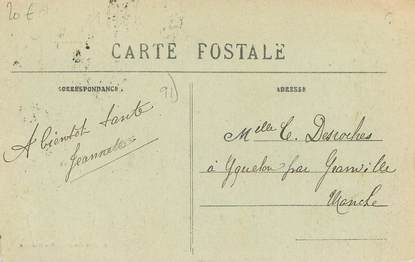 20 €
CARTE POSTALE
CORRESPONDANCE
91)
ADRESSE
A bientôt tante
Jeannette
Melle C. Desroches
à Yquelon par Granville
Manche